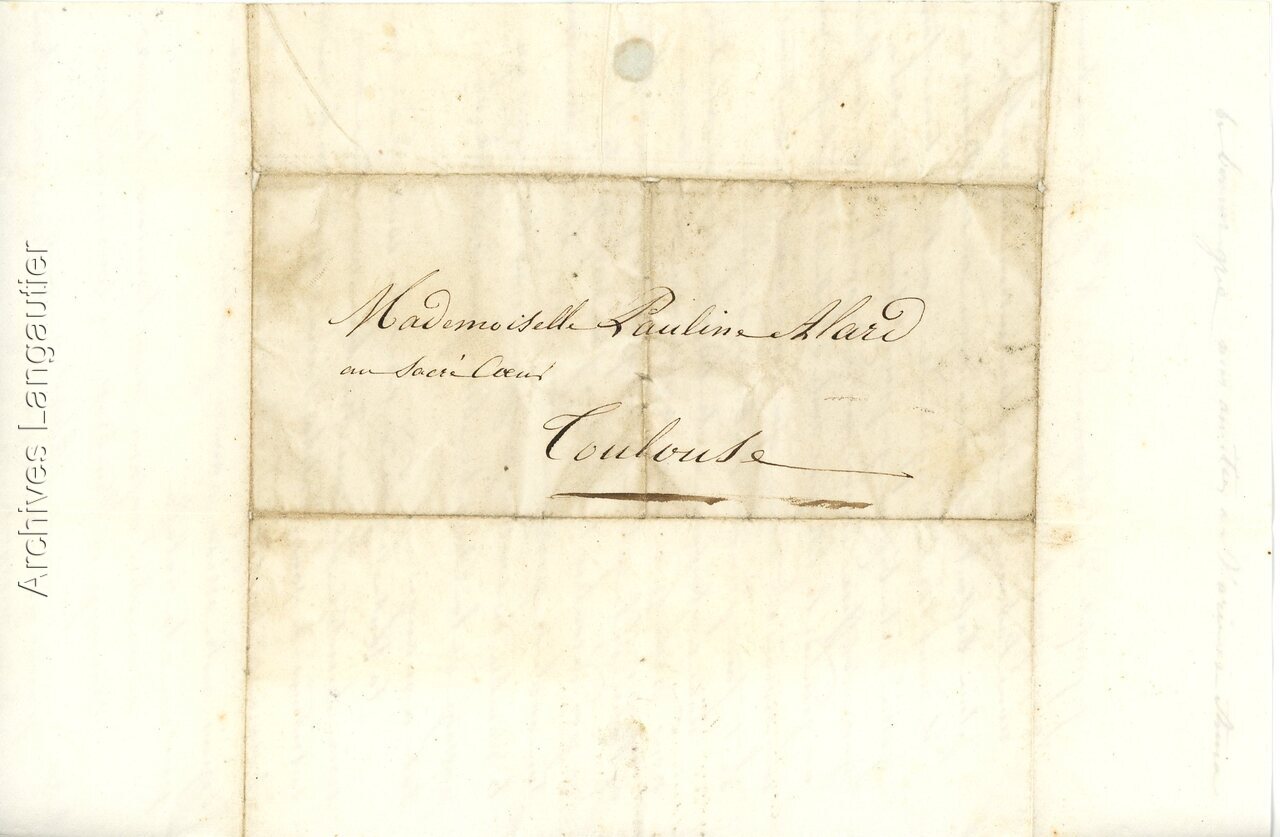 Mademoiselle Pauline Alard
au Sacré Cœur
Toulouse
Archives Langautier